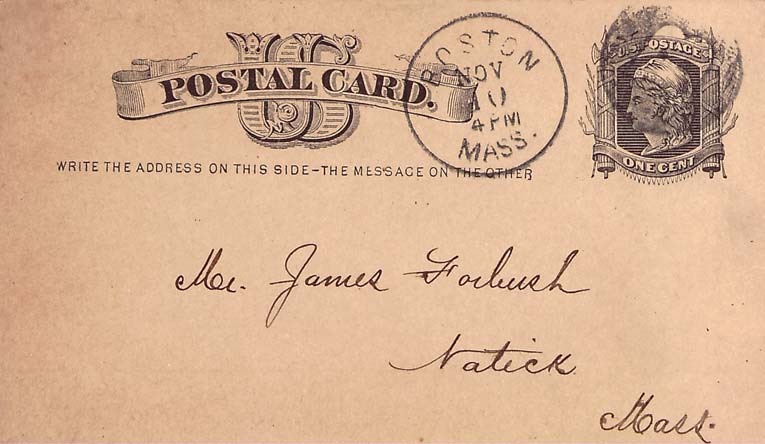 US
POSTAL CARD.
BOSTON
NOV
10
4 PM
MASS.
U.S. POSTAGE
ONE CENT
WRITE THE ADDRESS ON THIS SIDE-THE MESSAGE ON THE OTHER
Mr. James Forbush
Natick
Mass.